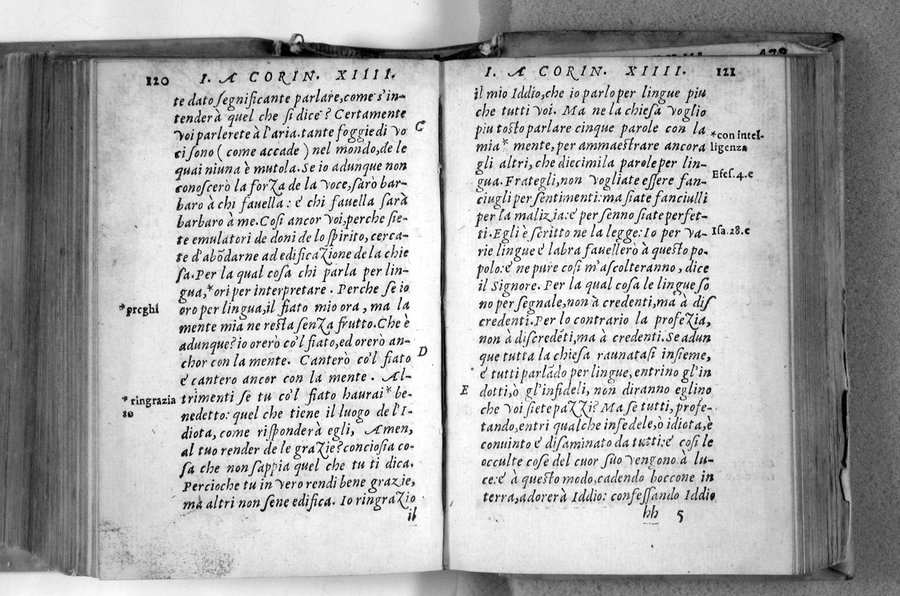 120 I. A CORIN. XIIII.
te dato significante parlare, come s'in-
tenderà quel che si dice? Certamente
voi parlerete à l'aria. tante foggie di vo
ci sono (come accade) nel mondo, de le
quai niuna è mutola. Se io adunque non
conoscerò la forza de la voce, sarò bar-
baro à chi favella: é chi favella sarà
barbaro à me. Così ancor voi, perche sie-
te emulatori de doni de lo spirito, cerca-
te d'abõdarne ad edificazione de la chie
sa. Per la qual cosa chi parla per lin-
gua, *ori per interpretare. Perche se io
oro per lingua, il fiato mio ora, ma la
mente mia ne resta senza frutto. Che è
adunque? io orerò co'l fiato, ed orerò an-
chor con la mente. Canterò co'l fiato
é cantero ancor con la mente. Al-
trimenti se tu co'l fiato haurai* be-
nedetto: quel che tiene il luogo de l'I-
diota, come risponderà egli, Amen,
al tuo render de le grazie? conciosia co-
sa che non sappia quel che tu ti dica.
Percioche tu in vero rendi bene grazie,
mà altri non sene edifica. Io ringrazio
il
C
*preghi
D
*ringrazia
to
I. A CORIN. XIIII. 121
il mio Iddio, che io parlo per lingue piu
che tutti voi. Ma ne la chiesa voglio
piu tosto parlare cinque parole con la
mia* mente, per ammaestrare ancora
gli altri, che diecimila parole per lin-
gua. Frategli, non vogliate essere fan-
ciugli per sentimenti: ma siate fanciulli
per la malizia: é per senno siate perfet-
ti. Egli è scritto ne la legge: Io per va-
rie lingue é labra favellerò à questo po-
polo: é ne pure cosi m'ascolteranno, dice
il Signore. Per la qual cosa le lingue so
no per segnale, non à credenti, mà à dis
credenti. Per lo contrario la profezia,
non à discredẽti, ma à credenti. Se adun
que tutta la chiesa raunatasi insieme,
é tutti parlãdo per lingue, entrino gl'in
dotti, ò gl'infideli, non diranno eglino
che voi siete pazzi? Ma se tutti, profe-
tando, entri qualche infedele, ò idiota, è
convinto é disaminato da tutti: é cosi le
occulte cose del cuor suo vengono à lu-
ce: é à questo modo, cadendo boccone in
terra, adorerà Iddio: confessando Iddio
hh 5
*con intel-
ligenza
Efes. 4. e
Isa. 28. e
E